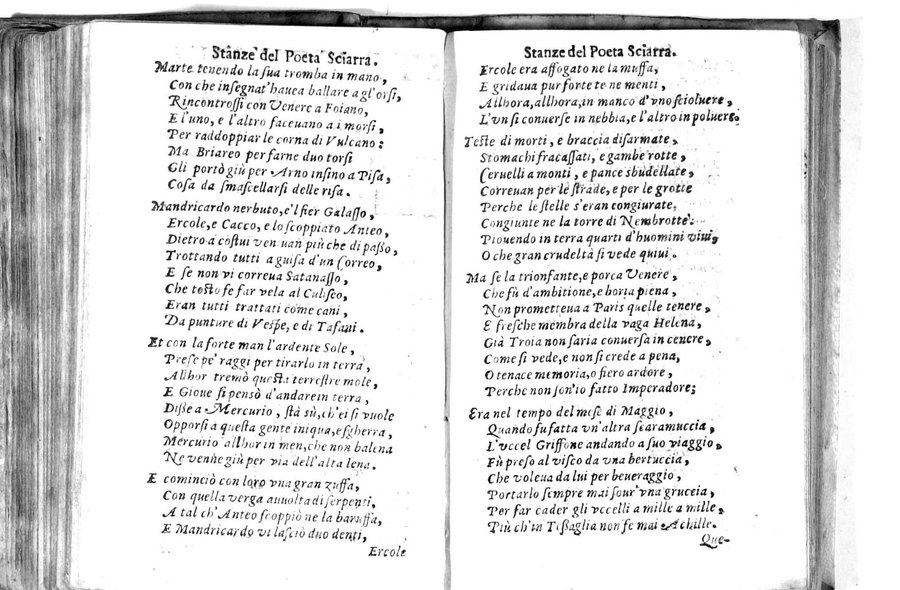 Stanze del Poeta Sciarra.
Marte tenendo la sua tromba in mano,
Con che insegnat'hauea ballare a gl'orsi,
Rincontrossi con Venere a Foiano,
E l'uno, e l'altro faceuano a i morsi,
Per raddoppiar le corna di Vulcano:
Ma Briareo per farne duo torsi
Gli portò giù per Arno insino a Pisa,
Cosa da smascellarsi delle risa.
Mandricardo nerbuto, e'l fier Galasso,
Ercole, e Cacco, e lo scoppiato Anteo,
Dietro a costui ven uan più che di passo,
Trottando tutti a guisa d'un Correo,
E se non vi correua Satanasso,
Che tosto fe far vela al Culiseo,
Eran tutti trattati come cani,
Da punture di Vespe, e di Tafani.
Et con la forte man l'ardente Sole,
Prese pe' raggi per tirarlo in terra,
Allhor tremò questa terrestre mole,
E Gioue si pensò d'andare in terra,
Disse a Mercurio, stà sù, ch'ei si vuole
Opporsi a questa gente iniqua, e sgherra,
Mercurio allhor in men, che non balena
Ne venne giù per via dell'alta lena.
E cominciò con loro vna gran zuffa,
Con quella verga auuolta di serpenti,
A tal ch'Anteo scoppiò ne la baruffa,
E Mandricardo vi lasciò duo denti,
Ercole
Stanze del Poeta Sciarra.
Ercole era affogato ne la muffa,
E gridaua pur forte te ne menti,
Allhora, allhora, in manco d'vno scioluere,
L'vn si conuerse in nebbia, e l'altro in poluere.
Teste di morti, e braccia disarmate,
Stomachi fracassati, e gambe rotte,
Ceruelli a monti, e pance sbudellate,
Correuan per le strade, e per le grotte
Perche le stelle s'eran congiurate,
Congiunte ne la torre di Nembrotte:
Piouendo in terra quarti d'huomini viui,
O che gran crudeltà si vede quiui.
Ma se la trionfante, e porca Venere,
Che fù d'ambitione, e boria piena,
Non prometteua a Paris quelle tenere,
E fresche membra della vaga Helena,
Già Troia non saria conuersa in cenere,
Come si vede, e non si crede a pena,
O tenace memoria, o fiero ardore,
Perche non son'io fatto Imperadore;
Era nel tempo del mese di Maggio,
Quando fu fatta vn'altra scaramuccia,
L'vccel Griffone andando a suo viaggio,
Fù preso al visco da vna bertuccia,
Che voleua da lui per beueraggio,
Portarlo sempre mai sour'vna gruccia,
Per far cader gli vccelli a mille a mille,
Più ch'in Tessaglia non fe mai Achille.
Que-